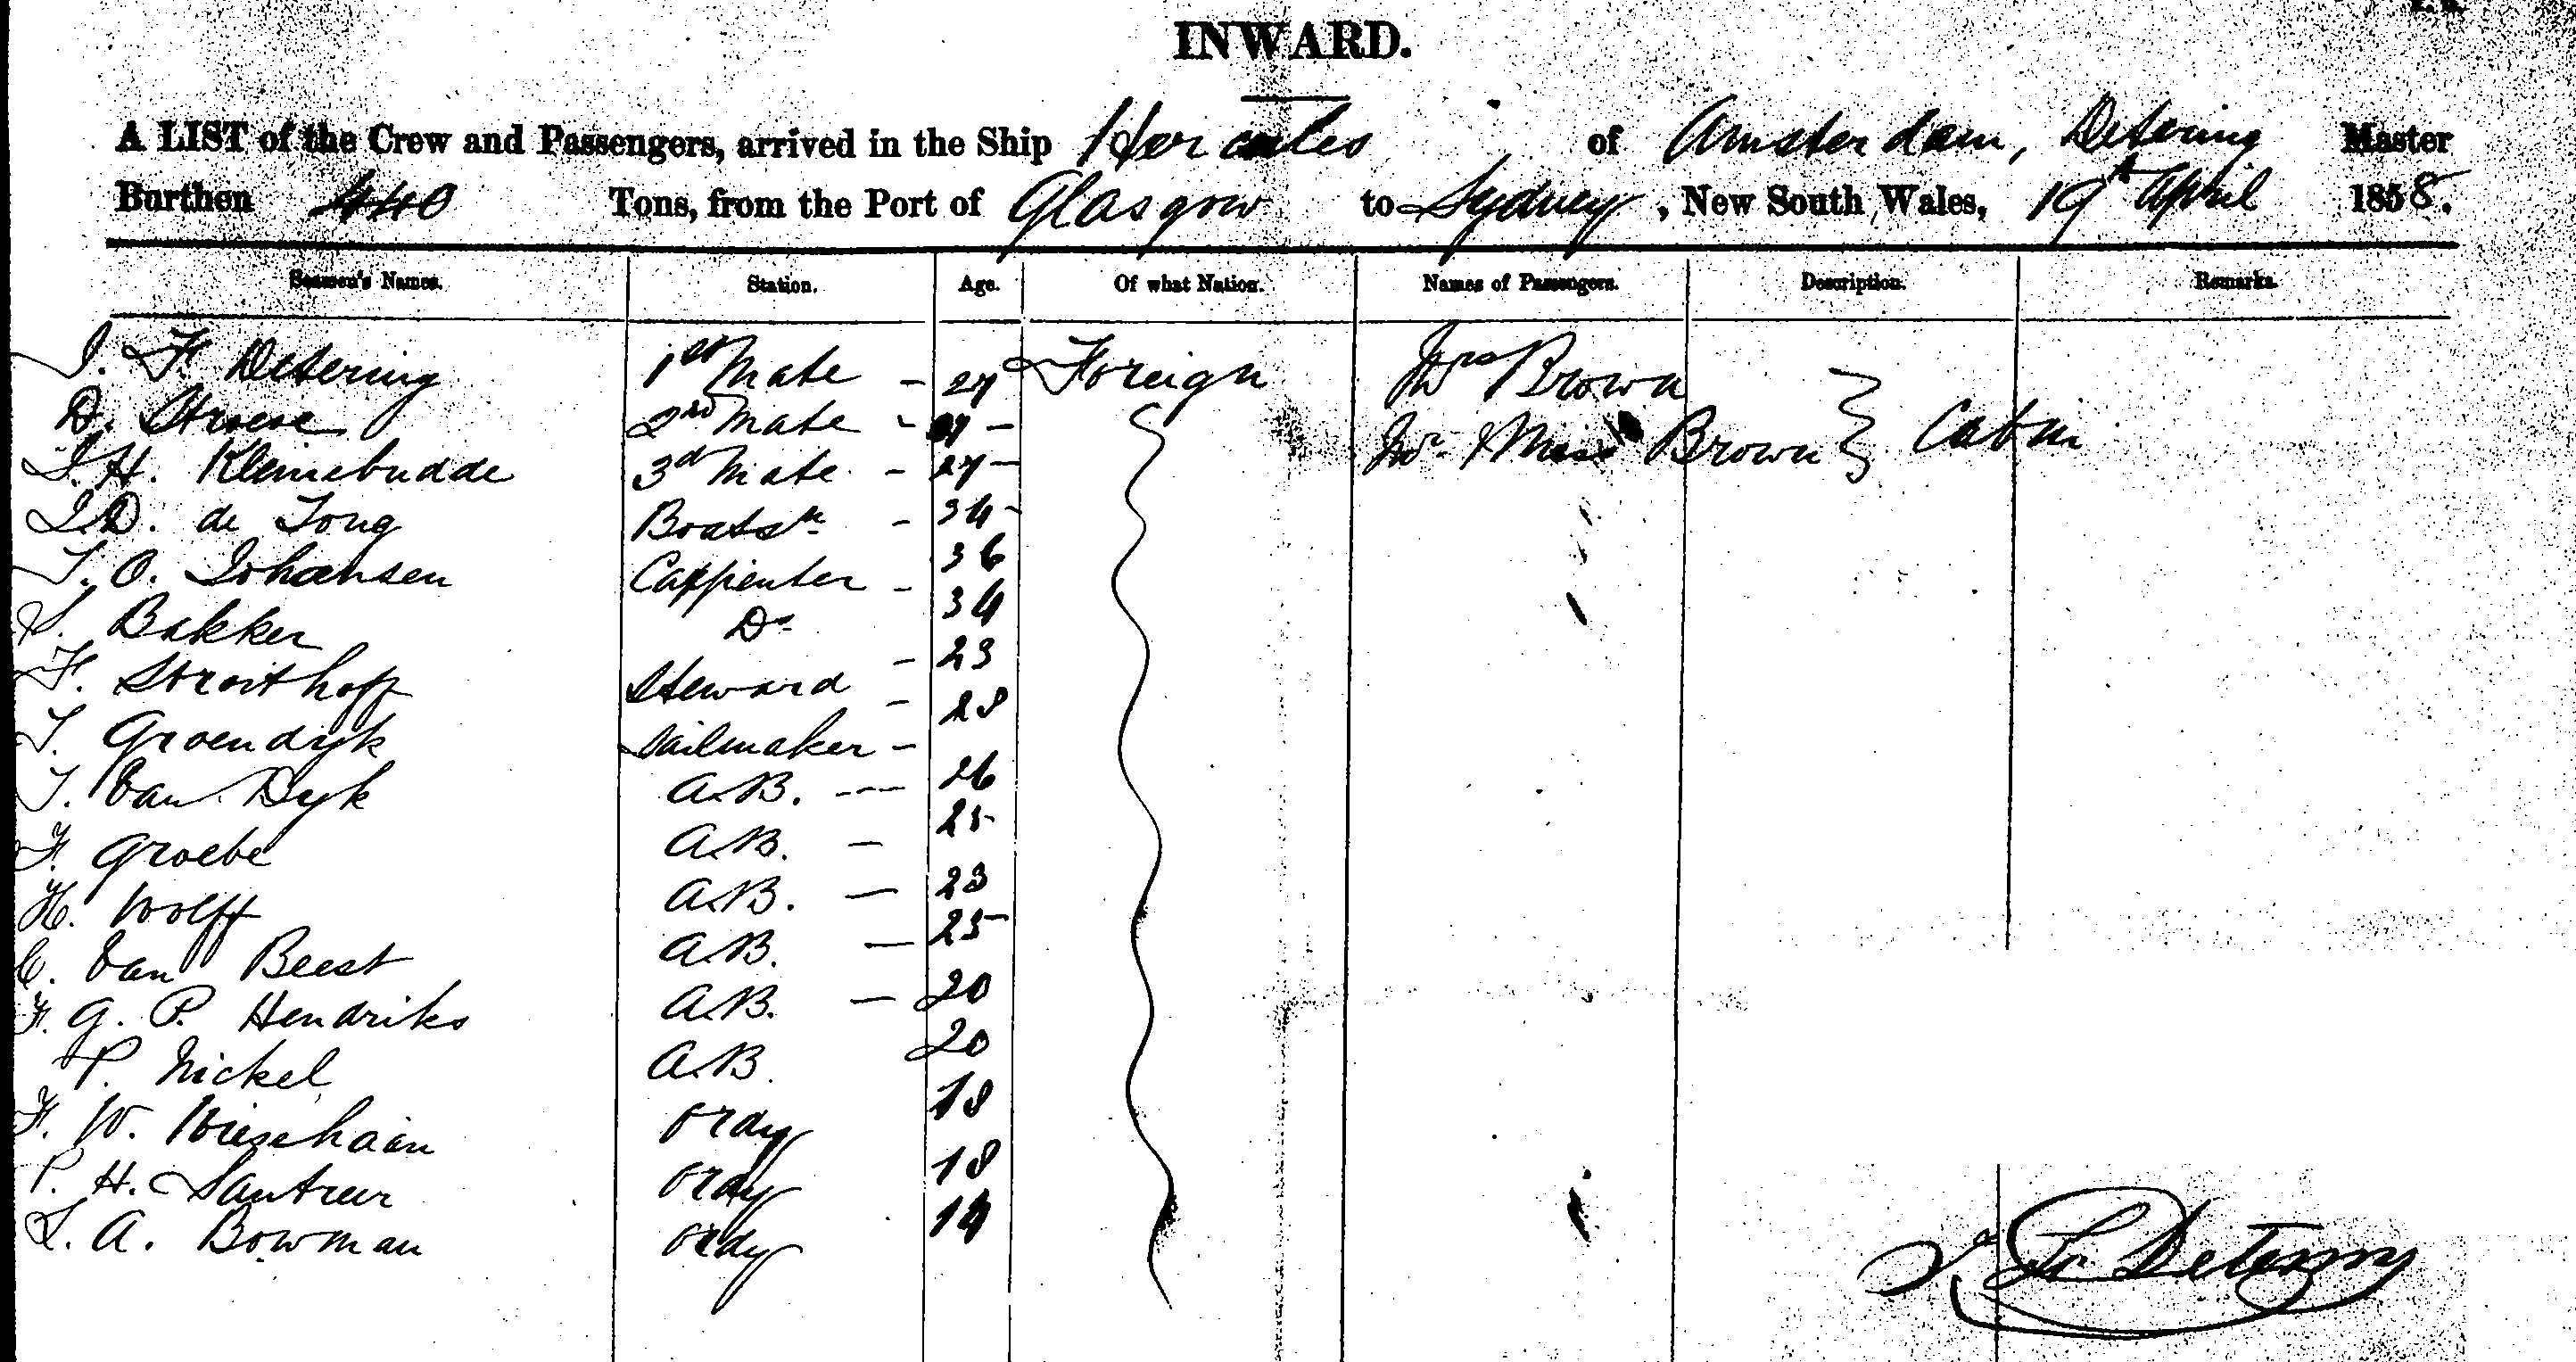 INWARD.
A LIST of the Crew and Passengers, arrived in the Ship Hercules of Amsterdam, Detering Master
Burthen 440 Tons, from the Port of Glasgow to Sydney, New South Wales, 19th April 1858.
Seamen's Names. Station. Age. Of what Nation. Names of Passengers. Description. Remarks.
J. F. Detering 1st Mate - 27 Foreign Mrs Brown
D. Stroeve 2nd Mate - -
J. H. Kleinebudde 3d Mate - 27 - Mr & Miss Brown } Cabin
J. D. de Jong Boatsn - 34 -
J. O. Johansen Carpenter - 36
J. Bakker Do 34
F. Stroithoff Steward - 23
J. Groendyk Sailmaker - 28
J. Van Dyk A.B. --- 26
F. Groebe A.B. - 25
H. Wolff A.B. - 23
C. Van Beest A.B. - 25
F. G. P. Hendriks A.B. - 20
P. Nickel A.B. 20
F. W. Ordy 18
P. H. Ordy 18
J. A. Bowman Ordy 14
J. Fr Detering